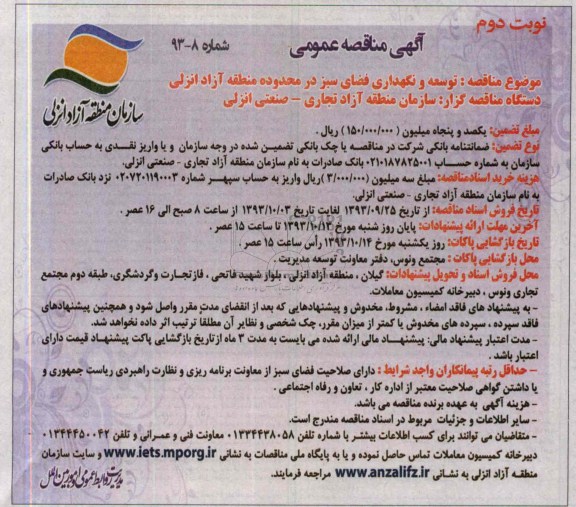 نوبت دوم
آگهی مناقصه عمومی
شماره ۸-۹۳
سازمان منطقه آزاد انزلی
موضوع مناقصه : توسعه و نگهداری فضای سبز در محدوده منطقه آزاد انزلی
دستگاه مناقصه گزار: سازمان منطقه آزاد تجاری – صنعتی انزلی
مبلغ تضمین: یکصد و پنجاه میلیون ( ۱۵۰/۰۰۰/۰۰۰) ریال .
نوع تضمین: ضمانتنامه بانکی شرکت در مناقصه یا چک بانکی تضمین شده در وجه سازمان و یا واریز نقدی به حساب بانکی
سازمان به شماره حساب ۰۲۱۰۱۸۷۸۲۵۰۰۱ بانک صادرات به نام سازمان منطقه آزاد تجاری - صنعتی انزلی.
هزینه خرید اسنادمناقصه: مبلغ سه میلیون (۳/۰۰۰/۰۰۰) ریال واریز به حساب سپهر شماره ۰۲۰۷۲۰۱۱۹۰۰۳ نزد بانک صادرات
به نام سازمان منطقه آزاد تجاری - صنعتی انزلی.
تاریخ فروش اسناد مناقصه: از تاریخ ۱۳۹۳/۰۹/۲۵ لغایت تاریخ ۱۳۹۳/۱۰/۰۳ از ساعت ۸ صبح الی ۱۶ عصر .
آخرین مهلت ارائه پیشنهادات: پایان روز شنبه مورخ ۱۳۹۳/۱۰/۱۳ تا ساعت ۱۵ عصر .
تاریخ بازگشایی پاکات: روز یکشنبه مورخ ۱۳۹۳/۱۰/۱۴ رأس ساعت ۱۵ عصر .
محل بازگشایی پاکات : مجتمع ونوس، دفتر معاونت توسعه مدیریت .
محل فروش اسناد و تحویل پیشنهادات: گیلان ، منطقه آزاد انزلی ، بلوار شهید فاتحی ، فازتجارت وگردشگری، طبقه دوم مجتمع
تجاری ونوس ، دبیرخانه کمیسیون معاملات.
- به پیشنهاد های فاقد امضاء ، مشروط، مخدوش و پیشنهادهایی که بعد از انقضای مدت مقرر واصل شود و همچنین پیشنهادهای
فاقد سپرده ، سپرده های مخدوش یا کمتر از میزان مقرر، چک شخصی و نظایر آن مطلقا ترتیب اثر داده نخواهد شد.
- مدت اعتبار پیشنهاد مالی: پیشنهاد مالی ارائه شده می بایست به مدت ۳ ماه ازتاریخ بازگشایی پاکت پیشنهاد قیمت دارای
اعتبار باشد .
– حداقل رتبه پیمانکاران واجد شرایط : دارای صلاحیت فضای سبز از معاونت برنامه ریزی و نظارت راهبردی ریاست جمهوری و
یا داشتن گواهی صلاحیت معتبر از اداره کار ، تعاون و رفاه اجتماعی .
- هزینه آگهی به عهده برنده مناقصه می باشد.
- سایر اطلاعات و جزئیات مربوط در اسناد مناقصه مندرج است.
- متقاضیان می توانند برای کسب اطلاعات بیشتر با شماره تلفن ۰۱۳۳۴۴۳۸۰۵۸ معاونت فنی و عمرانی و تلفن ۰۱۳۴۴۴۵۰۰۴۲
دبیرخانه کمیسیون معاملات تماس حاصل نموده و یا به پایگاه ملی مناقصات به نشانی www.iets.mporg.ir و سایت سازمان
منطقه آزاد انزلی به نشانی www.anzalifz.ir مراجعه فرمایند.
مدیریت روابط عمومی و امور بین الملل